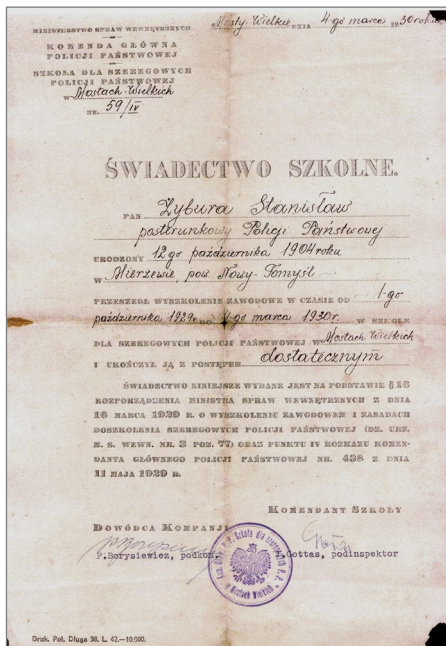 Mosty-Wielkie DNIA 4-go marca 1930 roku
MINISTERSTWO SPRAW WEWNĘTRZNYCH
KOMENDA GŁÓWNA
POLICJI PAŃSTWOWEJ
SZKOŁA DLA SZEREGOWYCH
POLICJI PAŃSTWOWEJ
W Mostach-Wielkich
NR. 59/IV
ŚWIADECTWO SZKOLNE.
PAN Zybura Stanisław
posterunkowy Policji Państwowej
URODZONY 12-go października 1904 roku
W Mierzewie, pow. Nowy-Tomyśl
PRZESZEDŁ WYSZKOLENIE ZAWODOWE W CZASIE OD 1-go
października 1929 r. DO 4-go marca 1930 r. W SZKOLE
DLA SZEREGOWYCH POLICJI PAŃSTWOWEJ W Mostach Wielkich
I UKOŃCZYŁ JĄ Z POSTĘPEM dostatecznym
ŚWIADECTWO NINIEJSZE WYDANE JEST NA PODSTAWIE § 16
ROZPORZĄDZENIA MINISTRA SPRAW WEWNĘTRZNYCH Z DNIA
16 MARCA 1929 R. O WYSZKOLENIU ZAWODOWEM I ZASADACH
DOSZKOLENIA SZEREGOWYCH POLICJI PAŃSTWOWEJ (DZ. URZ.
M. S. WEWN. NR. 3 POZ. 77) ORAZ PUNKTU IV ROZKAZU KOMEN-
DANTA GŁÓWNEGO POLICJI PAŃSTWOWEJ NR. 438 Z DNIA
11 MAJA 1929 R.
KOMENDANT SZKOŁY
DOWÓDCA KOMPANJI
P.Borysiewicz, podkom. Gottas, podinspektor
Szkoła dla szeregowych P. P.
w Mostach Wielkich
Druk. Pol. Długa 38. L. 42.—10,000.